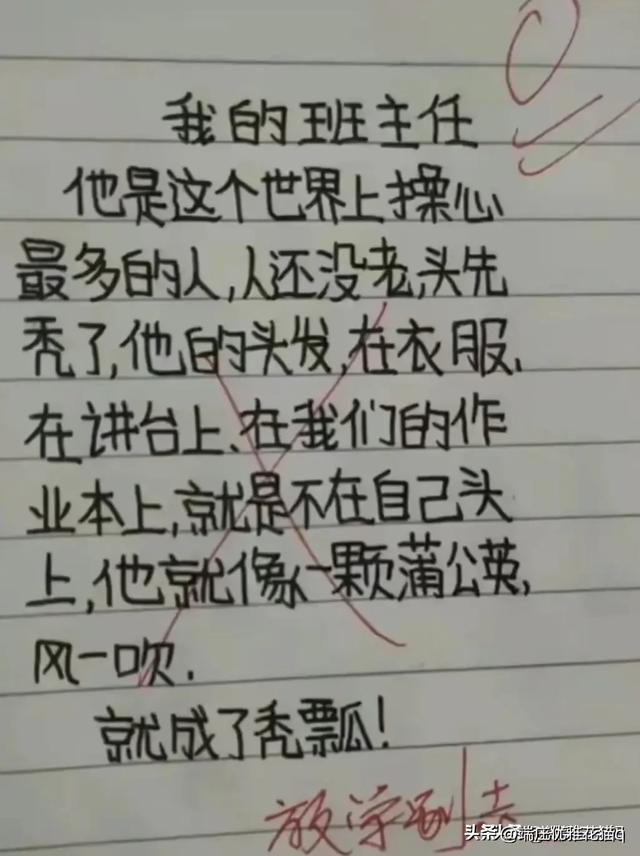 我的班主任
他是这个世界上操心
最多的人,人还没老,头先
秃了,他的头发,在衣服、
在讲台上、在我们的作
业本上,就是不在自己头
上,他就像一颗蒲公英,
风一吹.
就成了秃瓢!
0
放学别走
头条 @端庄优雅花猫Q